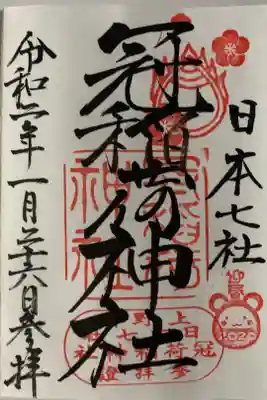 日本七社
迎春
2020
冠稲荷神社
令和二年一月二十六日参拝